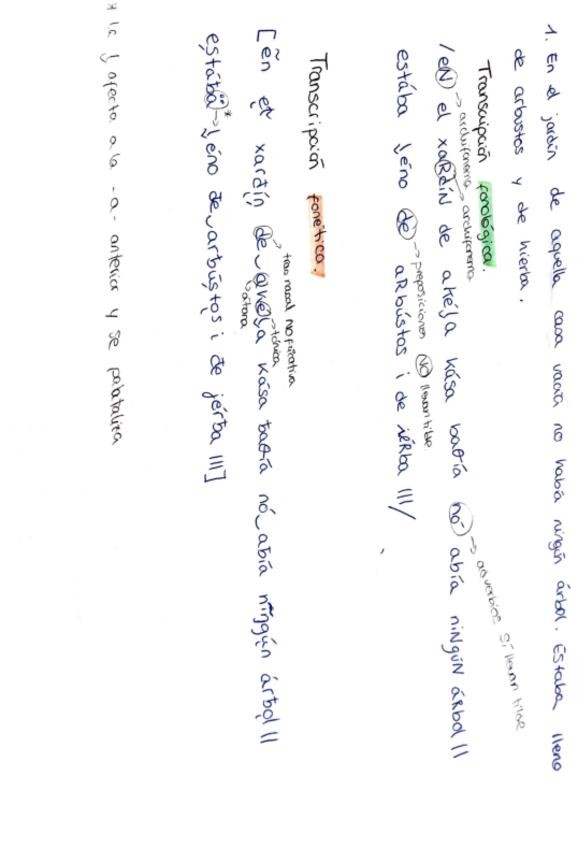 1. En el jardín de aquella casa vacía no había ningún árbol. Estaba lleno
de arbustos y de hierba.
Transcripción fonológica.
→ archifonema → archifonema → adverbios sí llevan tilde
/eN el xaRdíN de akéʝa kása baθía nó abía niNgúN áRbol ||
→ preposiciones NO llevan tilde
estába ʝéno de aRbústos i de iéRba |||/
Transcripción fonética.
→ tras nasal no fricativa
→ tónica
átona
[ẽn el̪ xarđín̪ de‿akéʝa kása baθía nó‿aƀía nĩŋgún árƀol̪ ||
estáƀä* → ʝéno đe‿arƀús̪tos i đe jérƀa |||]
* la ʝ afecta a la -a- anterior y se palataliza